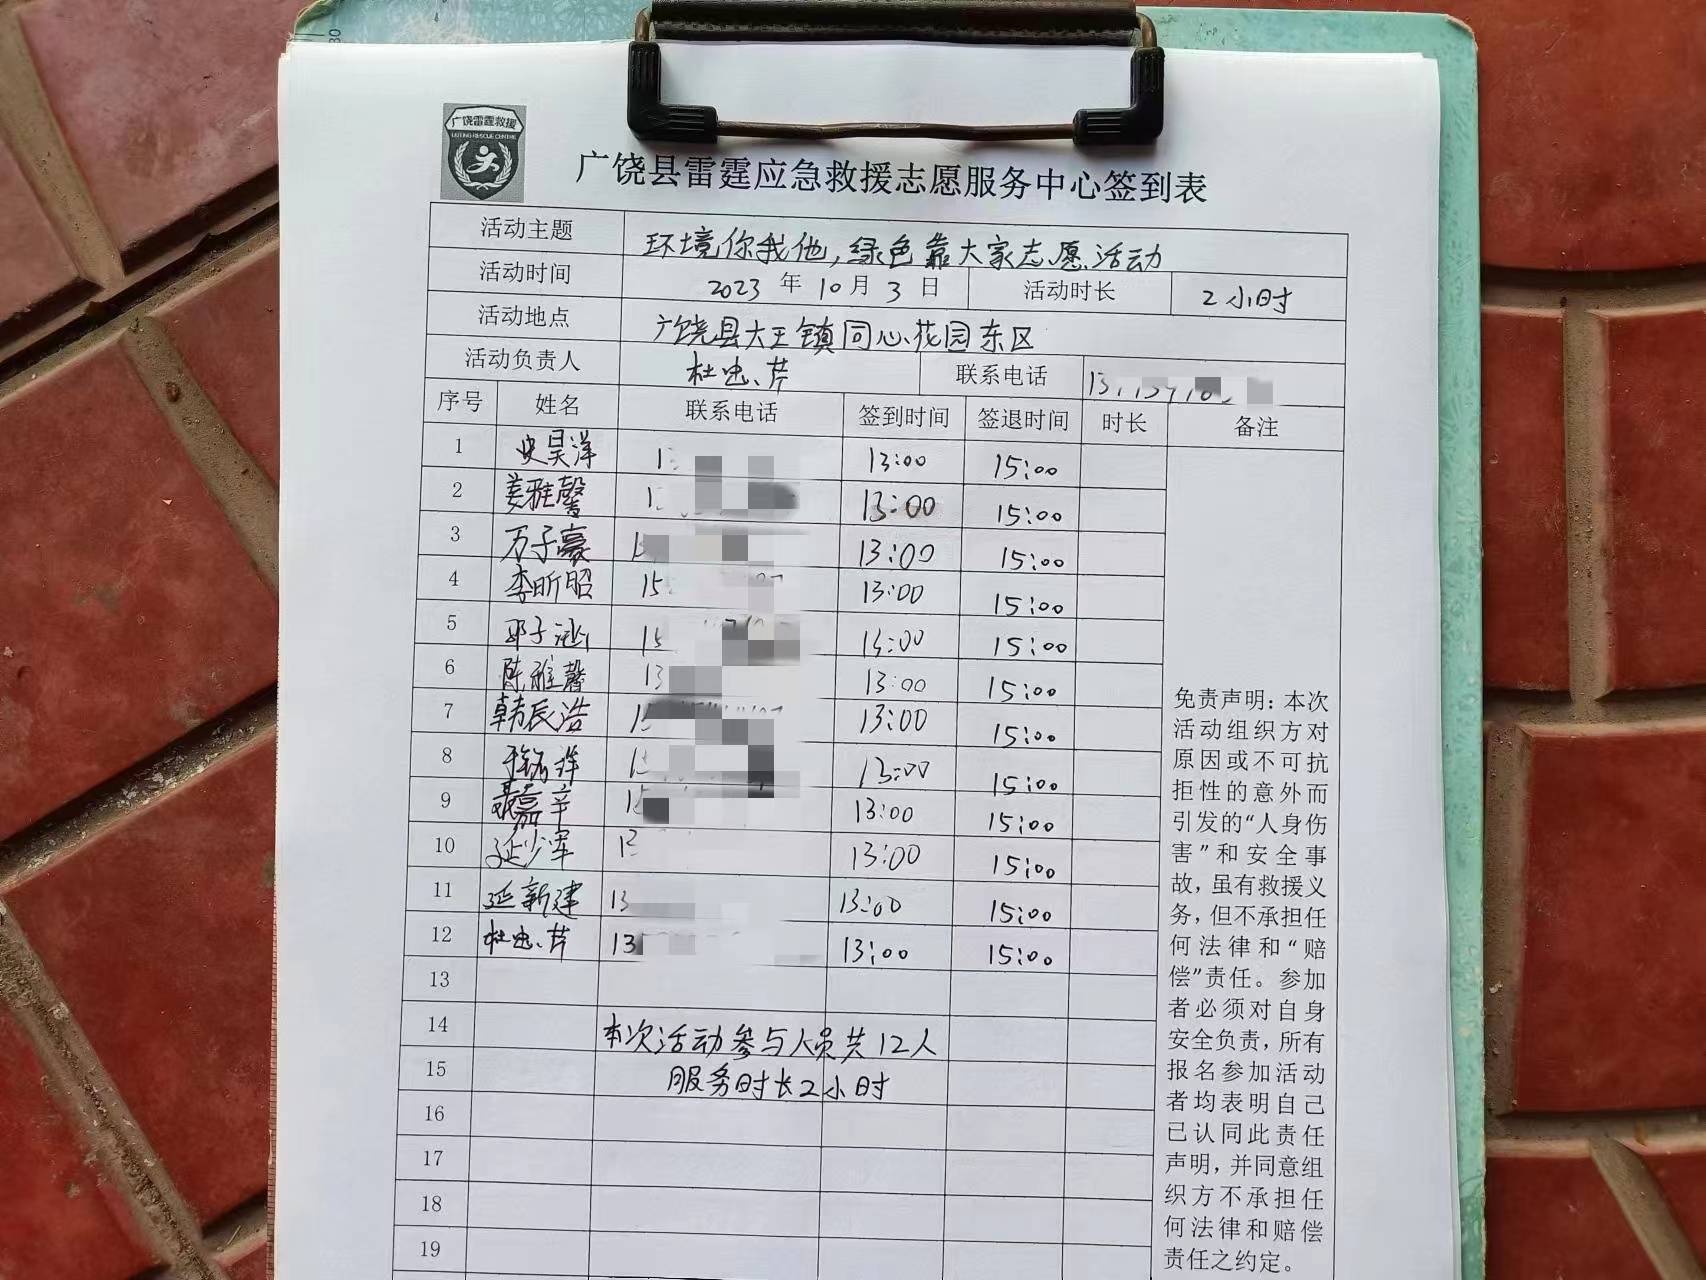 广饶雷霆救援
广饶县雷霆应急救援志愿服务中心签到表
活动主题 环境你我他,绿色靠大家志愿活动
活动时间 2023 年 10 月 3 日 活动时长 2小时
活动地点 广饶县大王镇同心花园东区
活动负责人 杜忠芹 联系电话
序号 姓名 联系电话 签到时间 签退时间 时长 备注
1 史昊洋 13:00 15:00
2 姜雅馨 13:00 15:00
3 万子豪 13:00 15:00
4 李昕昭 15 13:00 15:00
5 邓子涵 15 13:00 15:00
6 陈雅馨 13 13:00 15:00
7 韩辰浩 13:00 15:00
8 13:00 15:00
9 聂嘉辛 13:00 15:00
10 延少军 13:00 15:00
11 延新建 13 13:00 15:00
12 杜忠芹 13 13:00 15:00
13
14 本次活动参与人员共12人
15 服务时长2小时
16
17
18
19
免责声明:本次
活动组织方对
原因或不可抗
拒性的意外而
引发的“人身伤
害”和安全事
故,虽有救援义
务,但不承担任
何法律和“赔
偿”责任。参加
者必须对自身
安全负责,所有
报名参加活动
者均表明自己
已认同此责任
声明,并同意组
织方不承担任
何法律和赔偿
责任之约定。